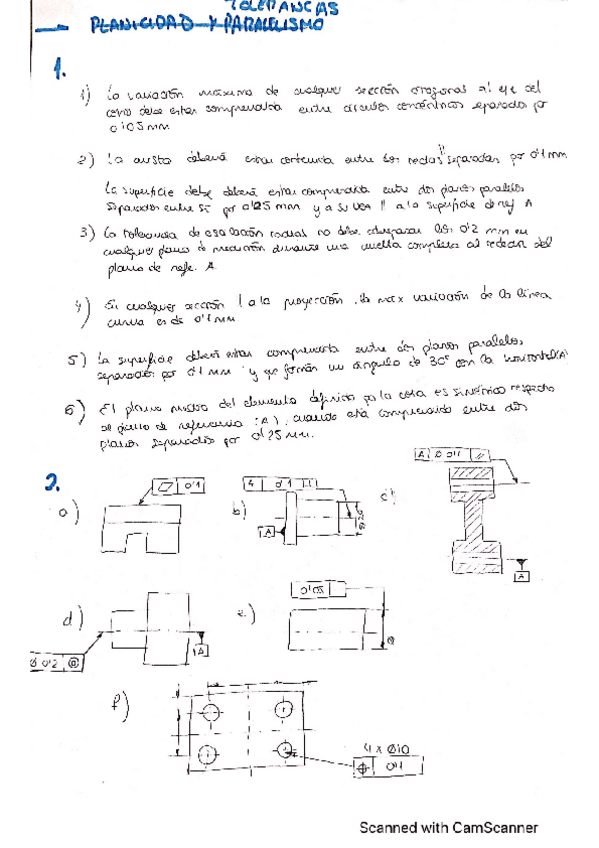 TOLERANCIAS
PLANICIDAD Y PARALELISMO
1.
1) La variación máxima de cualquier sección ortogonal al eje del
cono debe estar comprendida entre círculos concéntricos separados por
0'05 mm
2) La arista deberá estar contenida entre dos rectas // separadas por 0'1 mm
La superficie debe deberá estar comprendida entre dos planos paralelos
separados entre sí por 0'25 mm y a su vez // a la superficie de ref A
3) La tolerancia de oscilación radial no debe sobrepasar los 0'2 mm en
cualquier plano de medición durante una vuelta completa al rededor del
plano de refe. A.
4) En cualquier sección // a la proyección, la max variación de la línea
curva es de 0'1 mm
5) La superficie deberá estar comprendida entre dos planos paralelos,
separados por 0'1 mm y que forman un ángulo de 30° con la horizontal (A)
6) El plano medio del elemento definido por la cota es simétrico respecto
al plano de referencia (A), cuando está comprendido entre dos
planos separados por 0'25 mm.
2.
a) 0'1
b) 0'1 A
c) A Ø 0'1 //
A
d) A
Ø 0'2 ◎
e) 0'05
f)
4 x Ø10
⌖ 0'1
Scanned with CamScanner